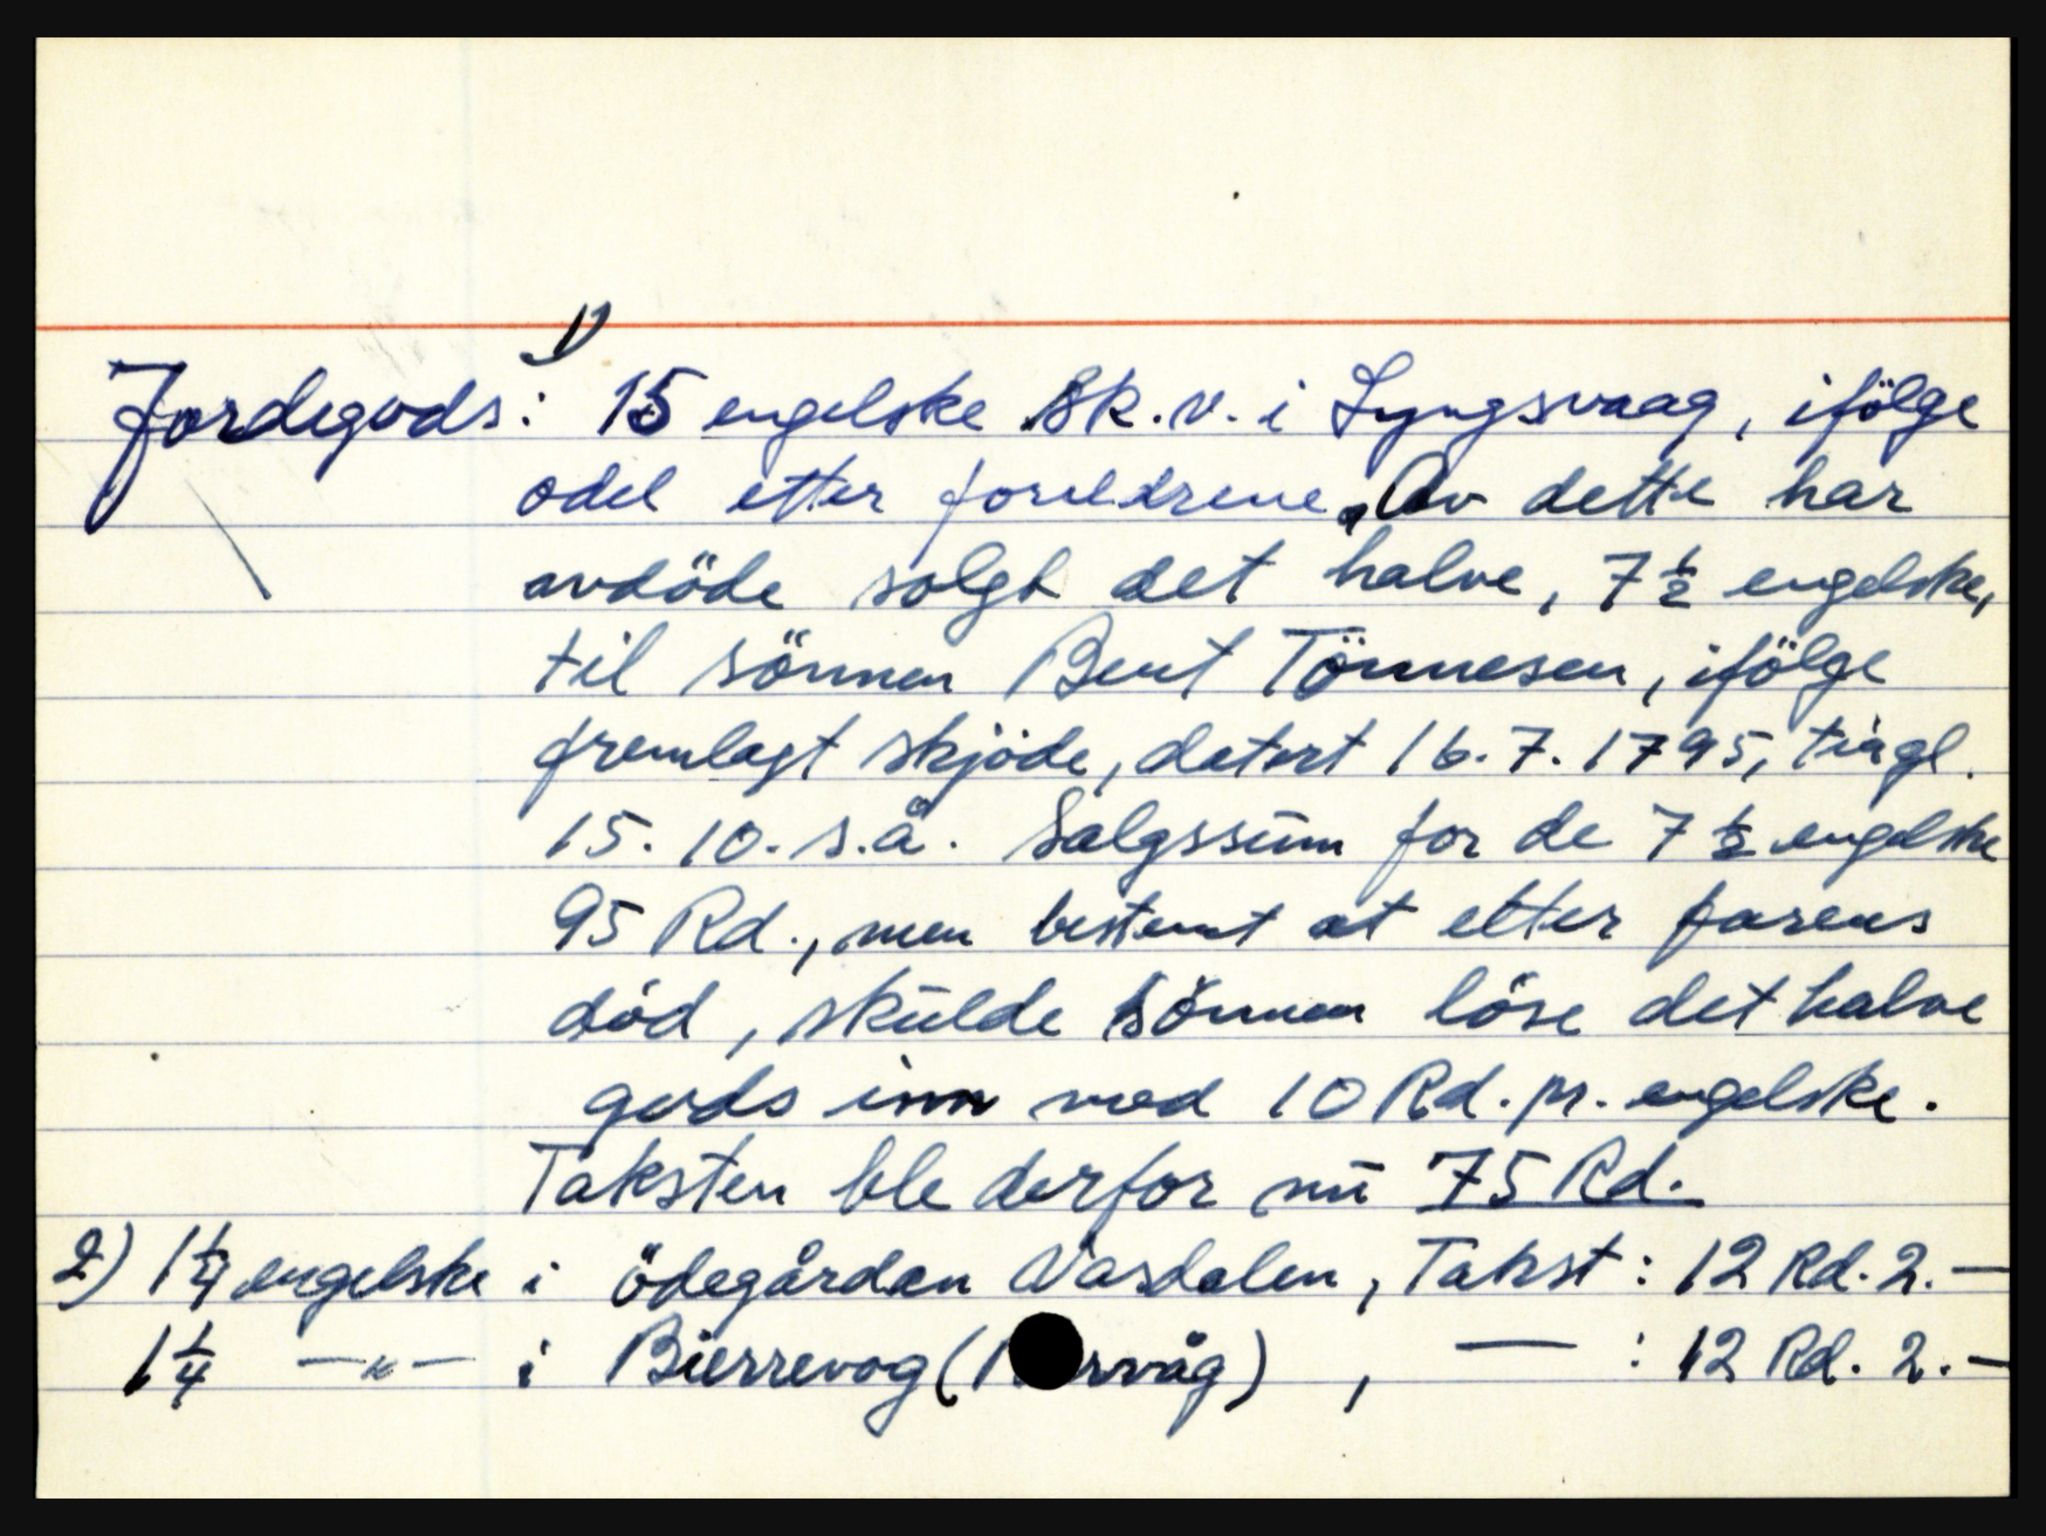 1)
Jordegods: 15 engelske sk.v. i Lyngsvaag, ifölge
odel etter foreldrene. Av dette har
avdöde solgt det halve, 7 1/2 engelske,
til sönnen Bent Tönnesen, ifölge
fremlagt skjöde, datert 16.7.1795, tingl.
15.10. s.å. Salgssum for de 7 1/2 engelske
95 Rd., men bestemt at etter farens
död, skulde sönnen löse det halve
gods inn med 10 Rd. pr. engelske.
Taksten ble derfor nu 75 Rd.
2) 1 1/4 engelske i ödegården Vasdalen, Takst: 12 Rd. 2.—
1 1/4 —"— i Bierrevog ( rvåg) , — : 12 Rd. 2.—